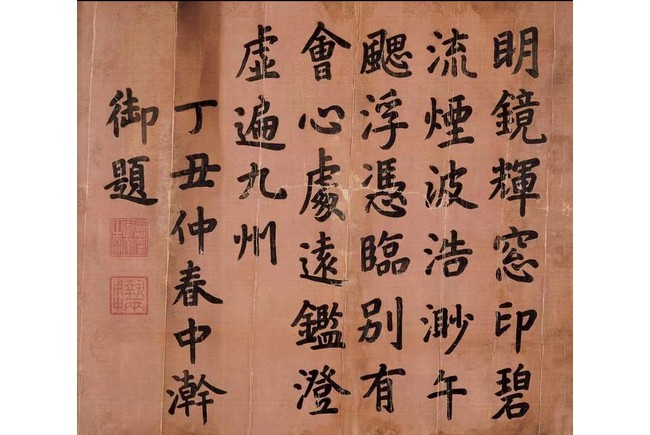 明鏡輝窓印碧
流煙波浩渺午
颸浮憑臨別有
會心處遠鑑澄
虛遍九州
丁丑仲春中澣
御題